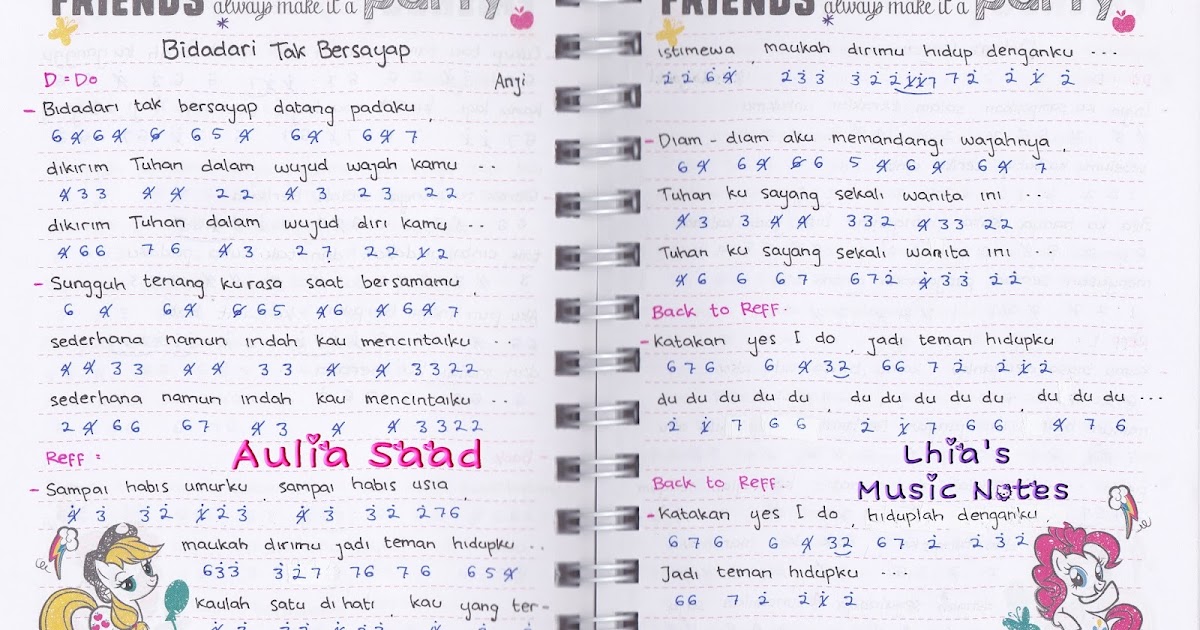 FRIENDS always make it a party
Bidadari Tak Bersayap
D = Do
Anji
- Bidadari tak bersayap datang padaku
6 1̸ 6 1̸ 5̸ 6 5 1̸ 6 1̸ 6 1̸ 7
dikirim Tuhan dalam wujud wajah kamu ..
1̸ 3 3 1̸ 1̸ 2 2 1̸ 3 2 3 2 2
dikirim Tuhan dalam wujud diri kamu ..
1̸ 6 6 7 6 1̸ 3 2 7 2 2 1̸ 2
- Sungguh tenang kurasa saat bersamamu,
6 1̸ 6 1̸ 5̸ 6 5 1̸ 6 1̸ 6 1̸ 7
sederhana namun indah kau mencintaiku ..
1̸ 1̸ 3 3 1̸ 1̸ 3 3 1̸ 1̸ 3 3 2 2
sederhana namun indah kau mencintaiku ..
2 1̸ 6 6 6 7 1̸ 3 1̸ 1̸ 3 3 2 2
Reff :
Aulia Saad
- Sampai habis umurku, sampai habis usia,
1̸̇ 3̇ 3̇ 2̇ 1̸̇ 2̇ 3̇ 1̸̇ 3̇ 3̇ 2̇ 2̇ 7 6
maukah dirimu jadi teman hidupku ..
6 3̇ 3̇ 3̇ 2̇ 7 7 6 7 6 6 5 1̸
kaulah satu di hati, kau yang ter-
FRIENDS always make it a party
istimewa, maukah dirimu hidup denganku ...
2̇ 2̇ 6 1̸ 2̇ 3̇ 3̇ 3̇ 2̇ 2̇ 1̸̇ 1̸̇ 7 7 2̇ 2̇ 1̸̇ 2̇
- Diam - diam aku memandangi wajahnya,
6 1̸ 6 1̸ 5̸ 6 5 1̸ 6 1̸ 6 1̸ 7
Tuhan ku sayang sekali wanita ini ...
1̸ 3 3 1̸ 1̸ 3 3 2 1̸ 3 3 2 2
Tuhan ku sayang sekali wanita ini ...
1̸ 6 6 6 7 6 7 2̇ 1̸̇ 3̇ 3̇ 2̇ 2̇
Back to Reff.
- Katakan yes I do, jadi teman hidupku
6 7 6 6 1̸ 3 2 6 6 7 2̇ 2̇ 1̸̇ 2̇
du du du du du, du du du du du, du du du ...
2̇ 1̸̇ 7 6 6 2̇ 1̸̇ 7 6 6 1̸ 7 6
Lhia's
Music Notes
Back to Reff.
- Katakan yes I do, hiduplah denganku,
6 7 6 6 1̸ 3 2 6 7 2̇ 2̇ 3̇ 2̇
Jadi teman hidupku ...
6 6 7 2̇ 2̇ 1̸̇ 2̇